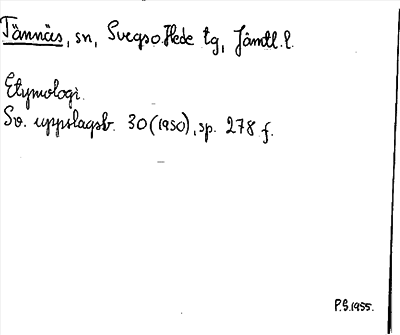 Tännäs, sn, Svegs o. Hede tg, Jämtl. l.
Etymologi.
Sv. uppslagsb. 30 (1950), sp. 278 f.
P.S. 1955.